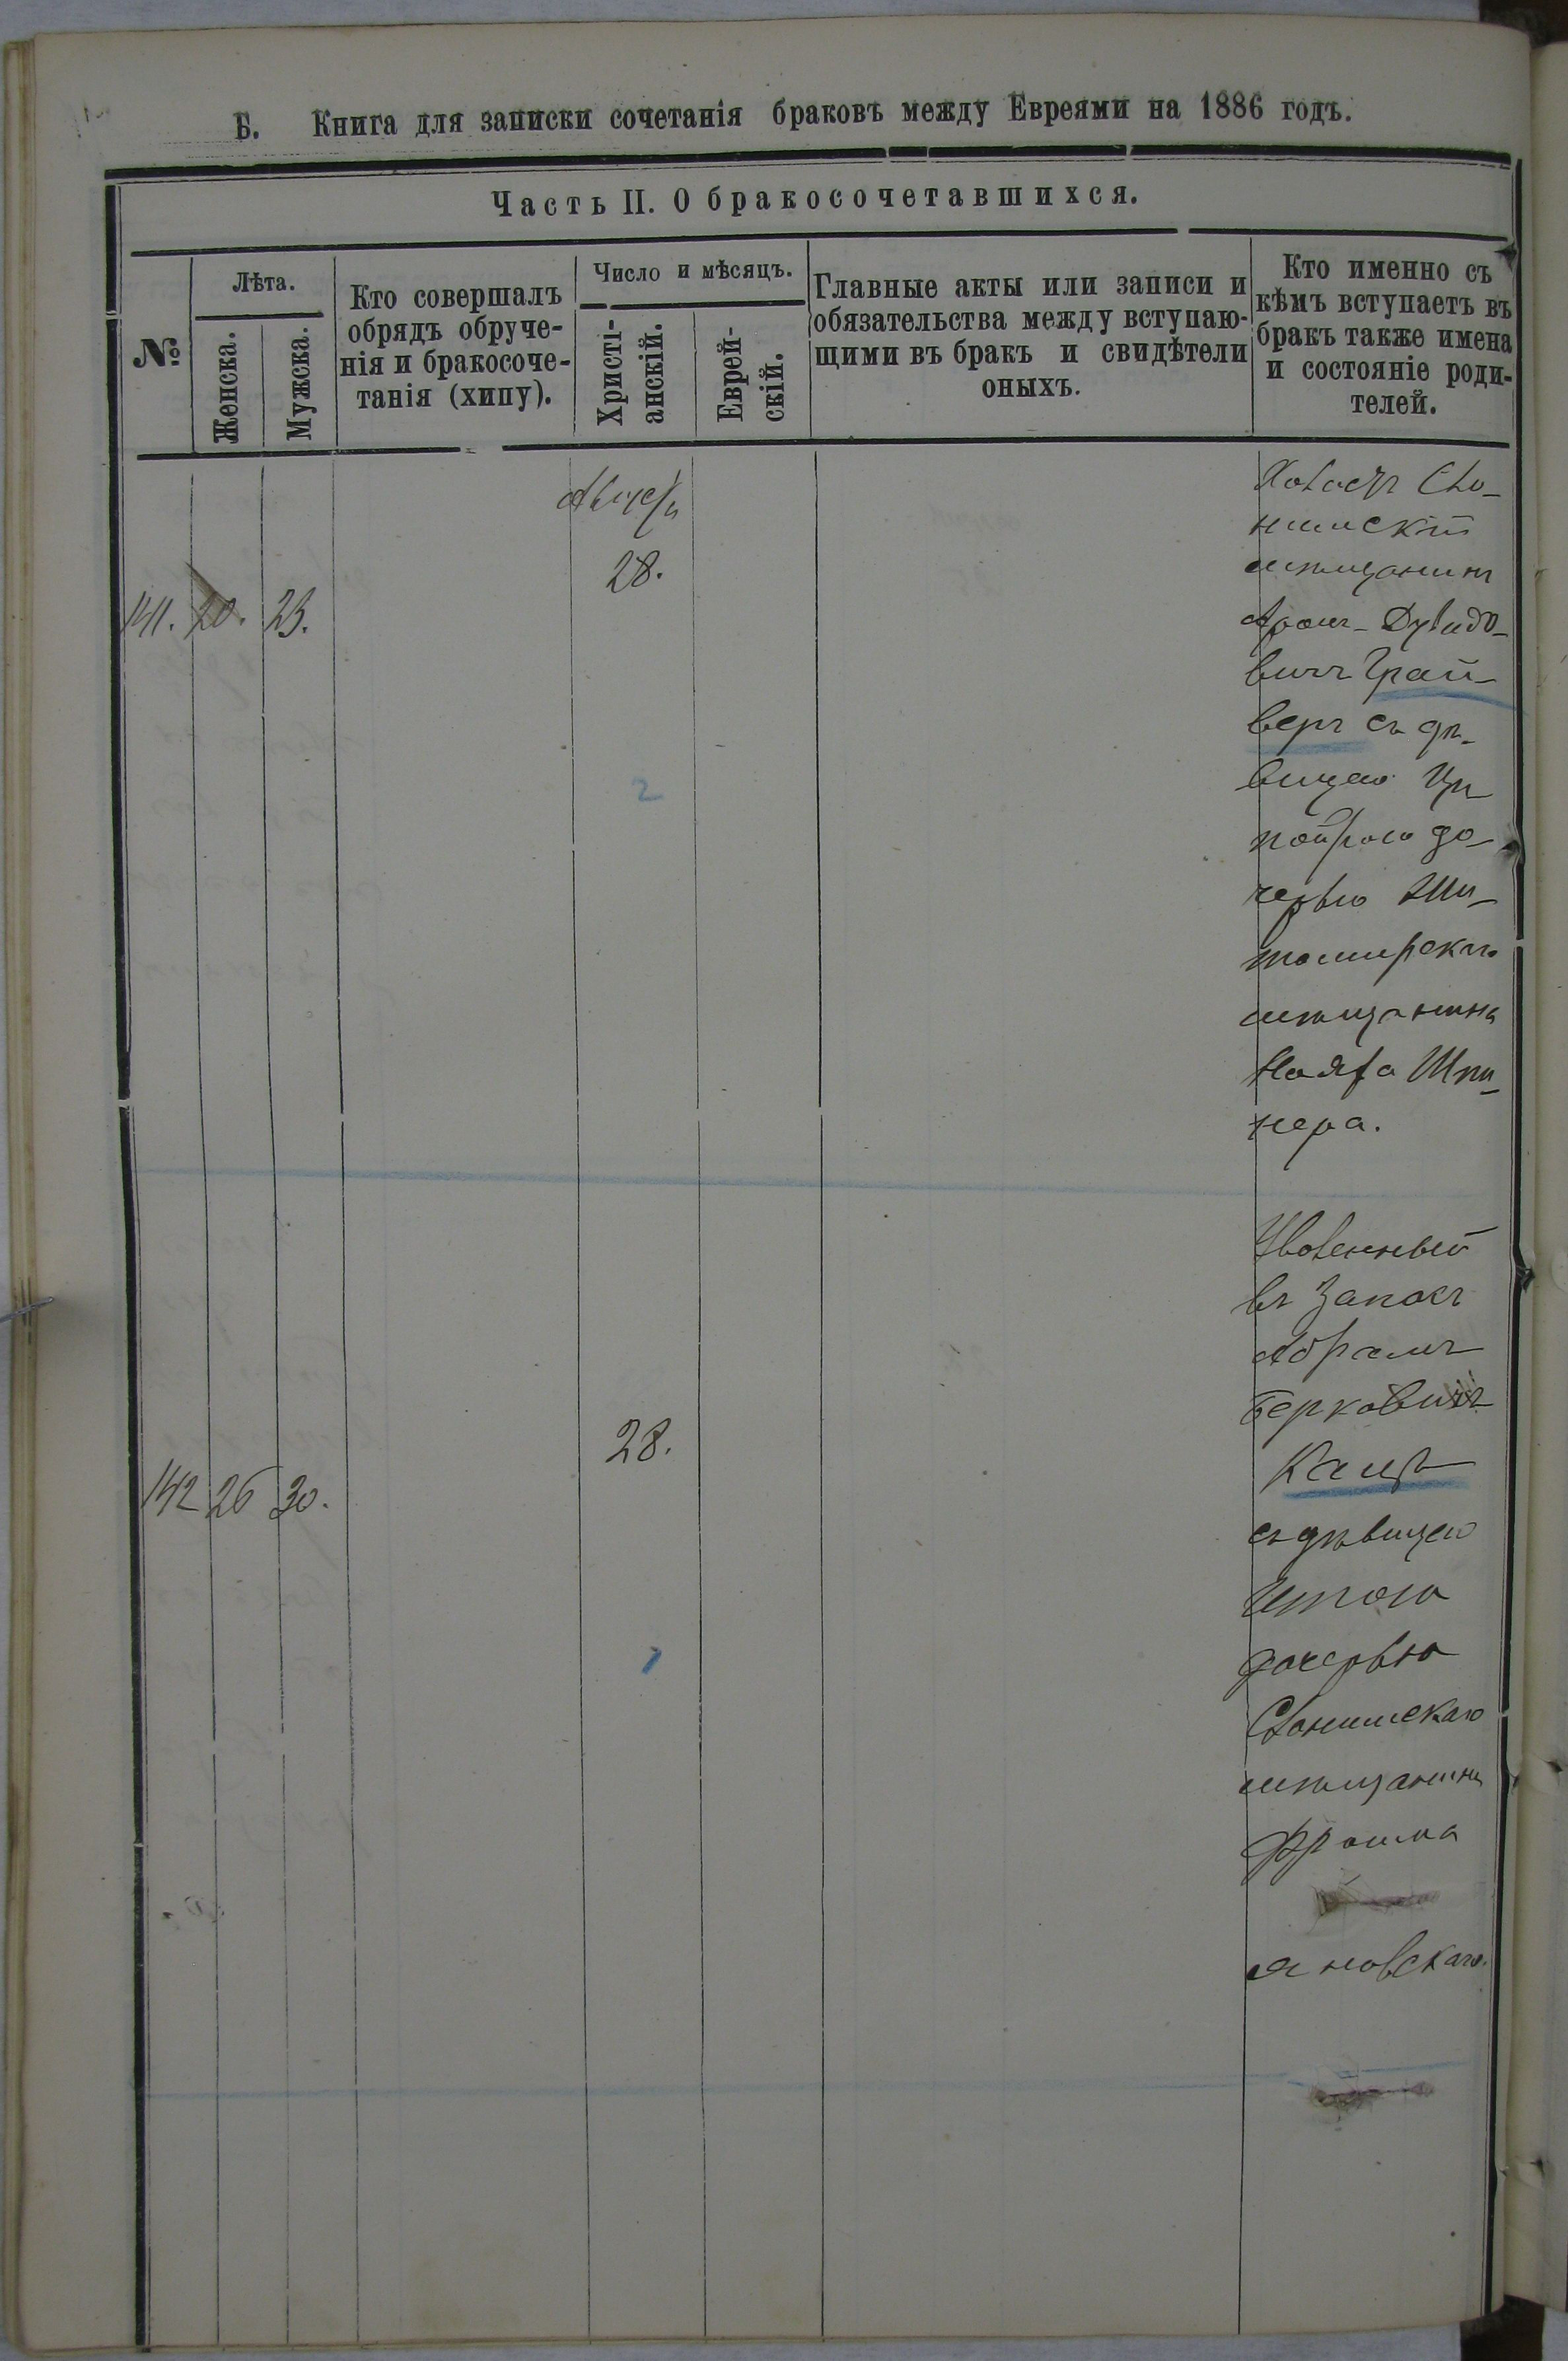 Б. Книга для записки сочетанія браковъ между Евреями на 1886 годъ.
Часть II. О бракосочетавшихся.
№
Лѣта.
Женска.
Мужска.
Кто совершалъ
обрядъ обруче-
нія и бракосоче-
танія (хипу).
Число и мѣсяцъ.
Христі-
анскій.
Еврей-
скій.
Главные акты или записи и
обязательства между вступаю-
щими въ бракъ и свидѣтели
оныхъ.
Кто именно съ
кѣмъ вступаетъ въ
бракъ также имена
и состояніе роди-
телей.
141. 20. 23.
28.
2
Холостъ Сло-
нимскій
мѣщанинъ
Аронъ-Дувидо-
вичъ Грай-
веръ съ дѣ-
вицею
до-
черью Жи-
томирскаго
мѣщанина
Шпи-
нера.
142 26 30.
28.
1
Уволенный
въ Запасъ
Абрамъ
Берковичъ
Кацъ
съ дѣвицею
Итою
дочерью
Слонимскаго
мѣщанина
Фроима
Яновскаго.